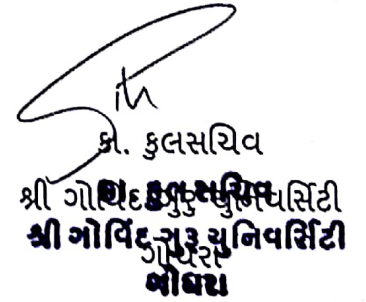 કા. કુલસચિવ
શ્રી ગોવિંદ ગુરુ યુનિવર્સિટી
કા. કુલસચિવ
શ્રી ગોવિંદ ગુરુ યુનિવર્સિટી
ગોધરા
ગોધરા